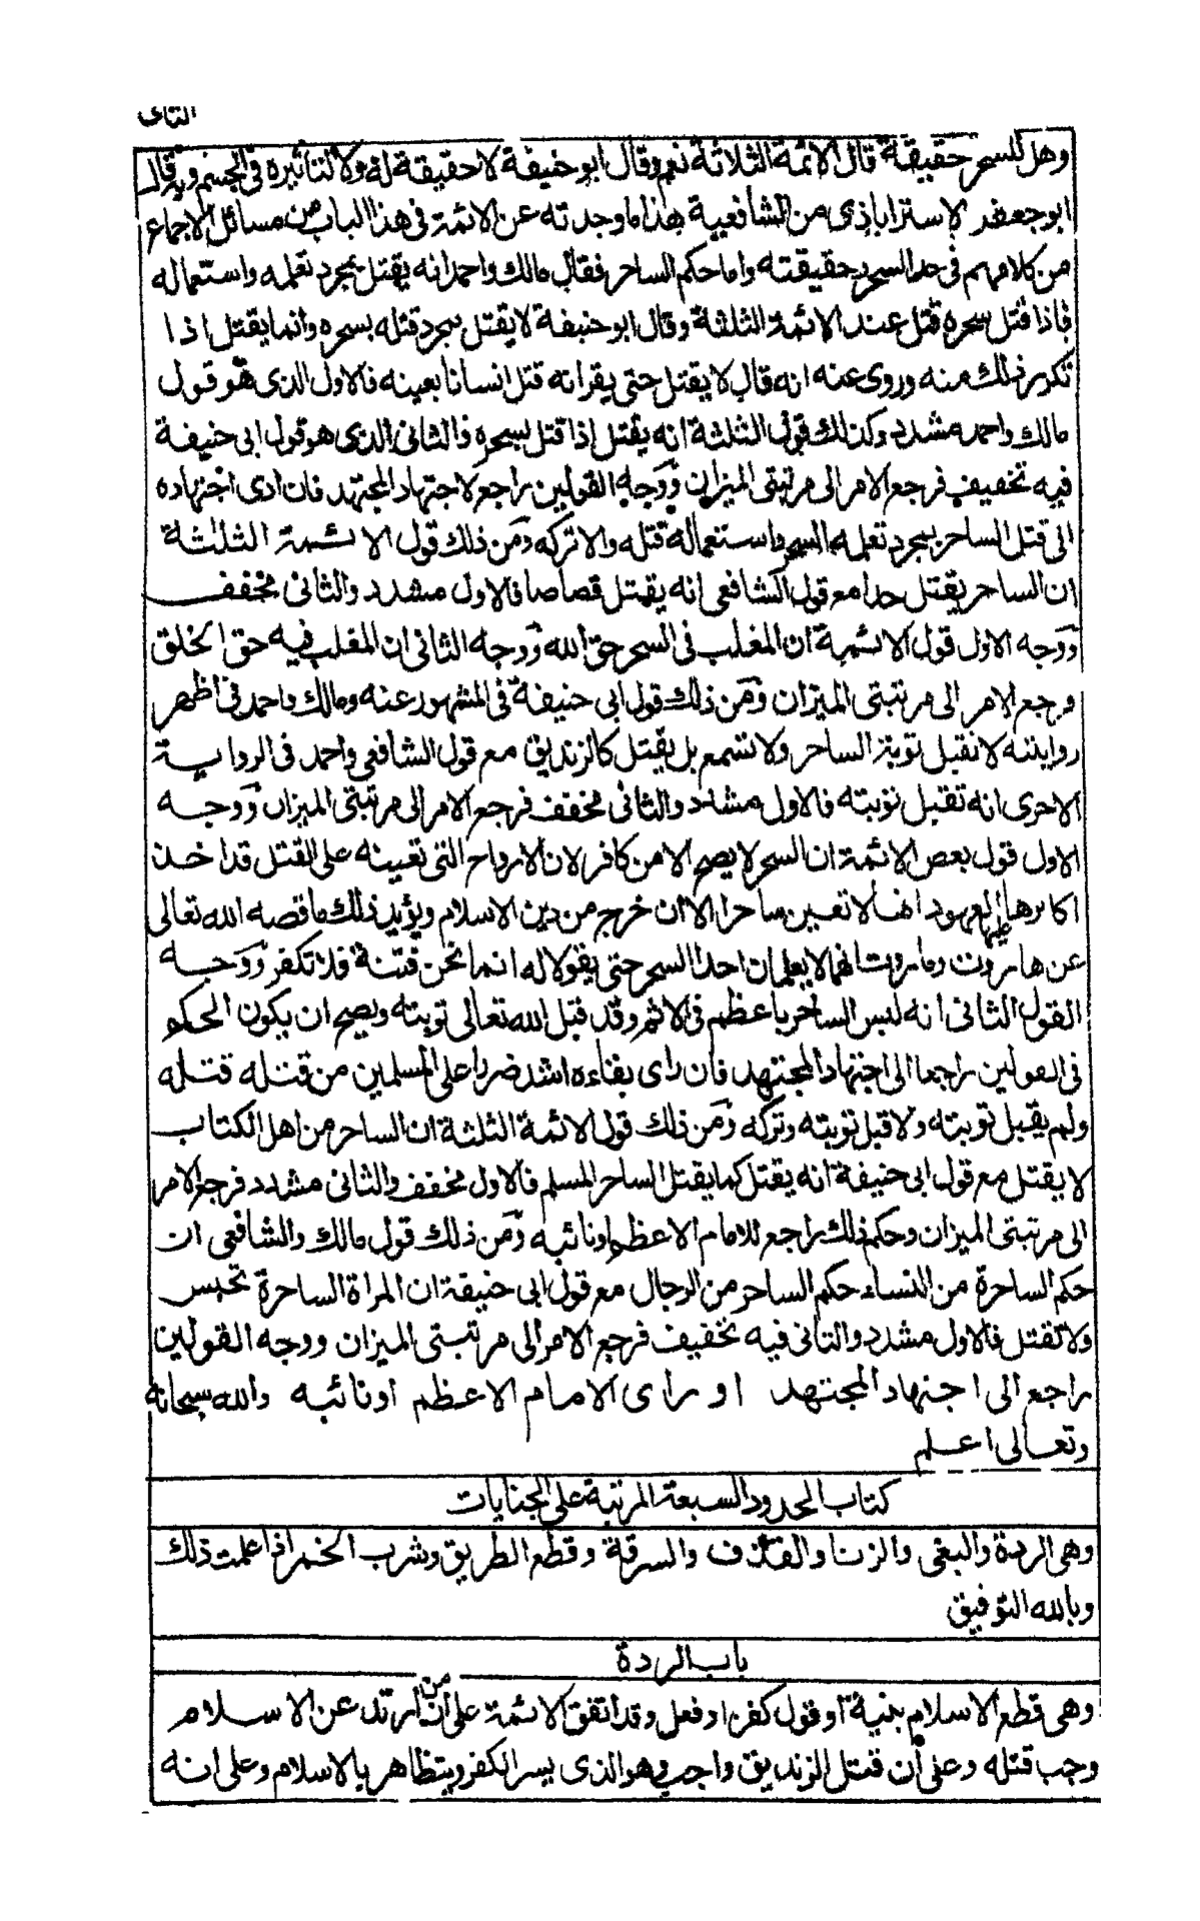 الثانى
وهل للسحر حقيقة قال الائمة الثلاثة نعم وقال ابو حنيفة لا حقيقة له ولا لتأثيره فى الجسم وبه قال
ابو جعفر الاستراباذى من الشافعية هذا ما وجدته عن الائمة فى هذا الباب من مسائل الاجماع
من كلامهم فى حد السحر وحقيقته واما حكم الساحر فقال مالك واحمد انه يقتل بمجرد تعلمه واستعماله
فاذا قتل بسحره قتل عند الائمة الثلثة وقال ابو حنيفة لا يقتل بمجرد قتله بسحره وانما يقتل اذا
تكرر ذلك منه وروى عنه انه قال لا يقتل حتى يقر انه قتل انسانا بعينه فالاول الذى هو قول
مالك واحمد مشدد وكذلك قول الثلثة انه يقتل اذا قتل بسحره والثانى الذى هو قول ابى حنيفة
فيه تخفيف فرجع الامر الى مرتبتى الميزان ووجه القولين راجع لاجتهاد المجتهد فان ادى اجتهاده
الى قتل الساحر بمجرد تعلمه السحر واستعماله قتله والا تركه ومن ذلك قول الائمة الثلثة
ان الساحر يقتل حدا مع قول الشافعى انه يقتل قصاصا فالاول مشدد والثانى مخفف
ووجه الاول قول الائمة ان المغلب فى السحر حق الله ووجه الثانى ان المغلب فيه حق الخلق
فرجع الامر الى مرتبتى الميزان ومن ذلك قول ابى حنيفة فى المشهور عنه ومالك واحمد فى اظهر
روايتيه لا تقبل توبة الساحر ولا تسمع بل يقتل كالزنديق مع قول الشافعى واحمد فى الرواية
الاخرى انه تقبل توبته فالاول مشدد والثانى مخفف فرجع الامر الى مرتبتى الميزان ووجه
الاول قول بعض الائمة ان السحر لا يصح الا من كافر لان الارواح التى تعينه على القتل قد اخذ
اكابرها عليها العهود انها لا تعين ساحرا الا ان خرج من دين الاسلام ويؤيد ذلك ما قصه الله تعالى
عن هاروت وماروت انهما لا يعلمان احدا السحر حتى يقولا له انما نحن فتنة فلا تكفر ووجه
القول الثانى انه ليس الساحر باعظم فى الاثم وقد قبل الله تعالى توبته ويصح ان يكون الحكم
فى القولين راجعا الى اجتهاد المجتهد فان راى بقاءه اشد ضررا على المسلمين من قتله قتله
ولم يقبل توبته والا قبل توبته وتركه ومن ذلك قول الائمة الثلثة ان الساحر من اهل الكتاب
لا يقتل مع قول ابى حنيفة انه يقتل كما يقتل الساحر المسلم فالاول مخفف والثانى مشدد فرجع الامر
الى مرتبتى الميزان وحكم ذلك راجع للامام الاعظم او نائبه ومن ذلك قول مالك والشافعى ان
حكم الساحرة من النساء حكم الساحر من الرجال مع قول ابى حنيفة ان المراة الساحرة تحبس
ولا تقتل فالاول مشدد والثانى فيه تخفيف فرجع الامر الى مرتبتى الميزان ووجه القولين
راجع الى اجتهاد المجتهد او راى الامام الاعظم او نائبه والله سبحانه
وتعالى اعلم
كتاب الحدود السبعة المرتبة على الجنايات
وهى الردة والبغى والزنا والقذف والسرقة وقطع الطريق وشرب الخمر اذا علمت ذلك
وبالله التوفيق
باب الردة
وهى قطع الاسلام بنية او قول كفر او فعل وقد اتفق الائمة على ان من ارتد عن الاسلام
وجب قتله وعلى ان قتل الزنديق واجب وهو الذى يسر الكفر ويتظاهر بالاسلام وعلى انه